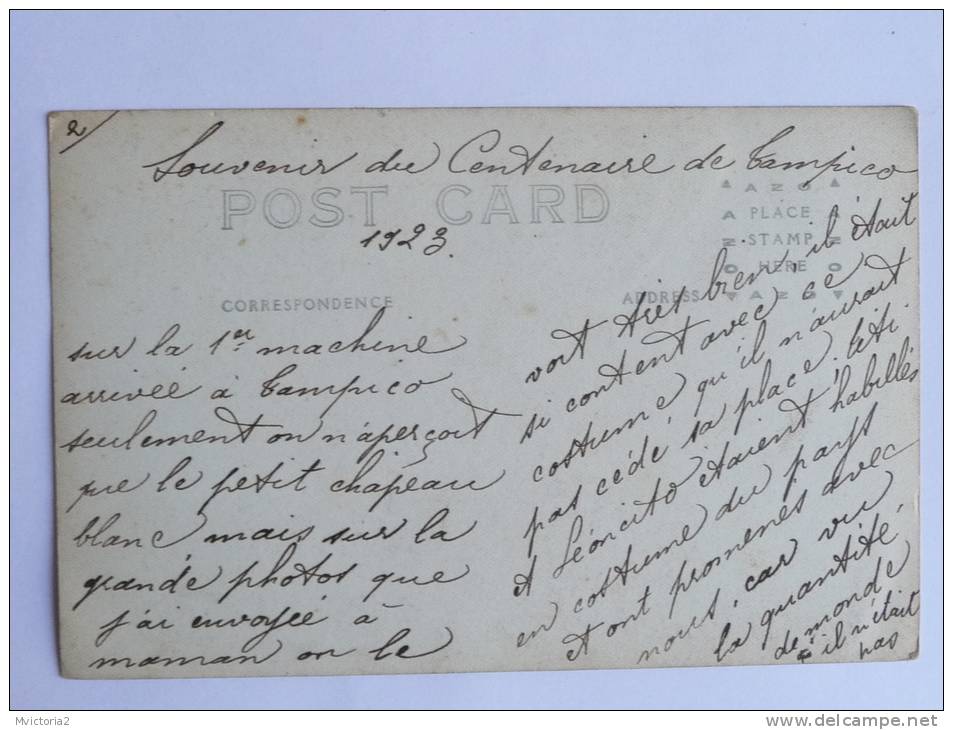 2/
Souvenir du Centenaire de Tampico
POST CARD
1923.
AZO
PLACE
STAMP
HERE
AZO
CORRESPONDENCE
ADDRESS
sur la 1er machine
arrivée à Tampico
seulement on n'aperçoit
que le petit chapeau
blanc mais sur la
grande photos que
j'ai envoyée à
maman on le
voit très bien, il était
si content avec ce
costume qu'il n'aurait
pas cédé sa place. Titi
et Léoncito étaient habillés
en costume du pays
et ont promenés avec
nous, car vu
la quantité
de monde
il n'était
pas
Mvictoria2
www.delcampe.net